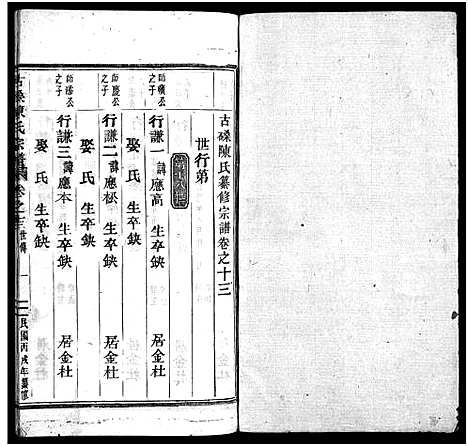 古磉陳氏纂修宗譜卷之十三
世行第
師廣公之子
行謙一 諱應高 生卒缺 居金杜
娶 氏 生卒缺
師慶公之子
行謙二 諱應松 生卒缺 居金杜
娶 氏 生卒缺
師 公之子
行謙三 諱應本 生卒缺 居金杜
娶 氏 生卒缺
古磉陳氏宗譜 卷之十三 世傳 一 民國丙戌年纂修